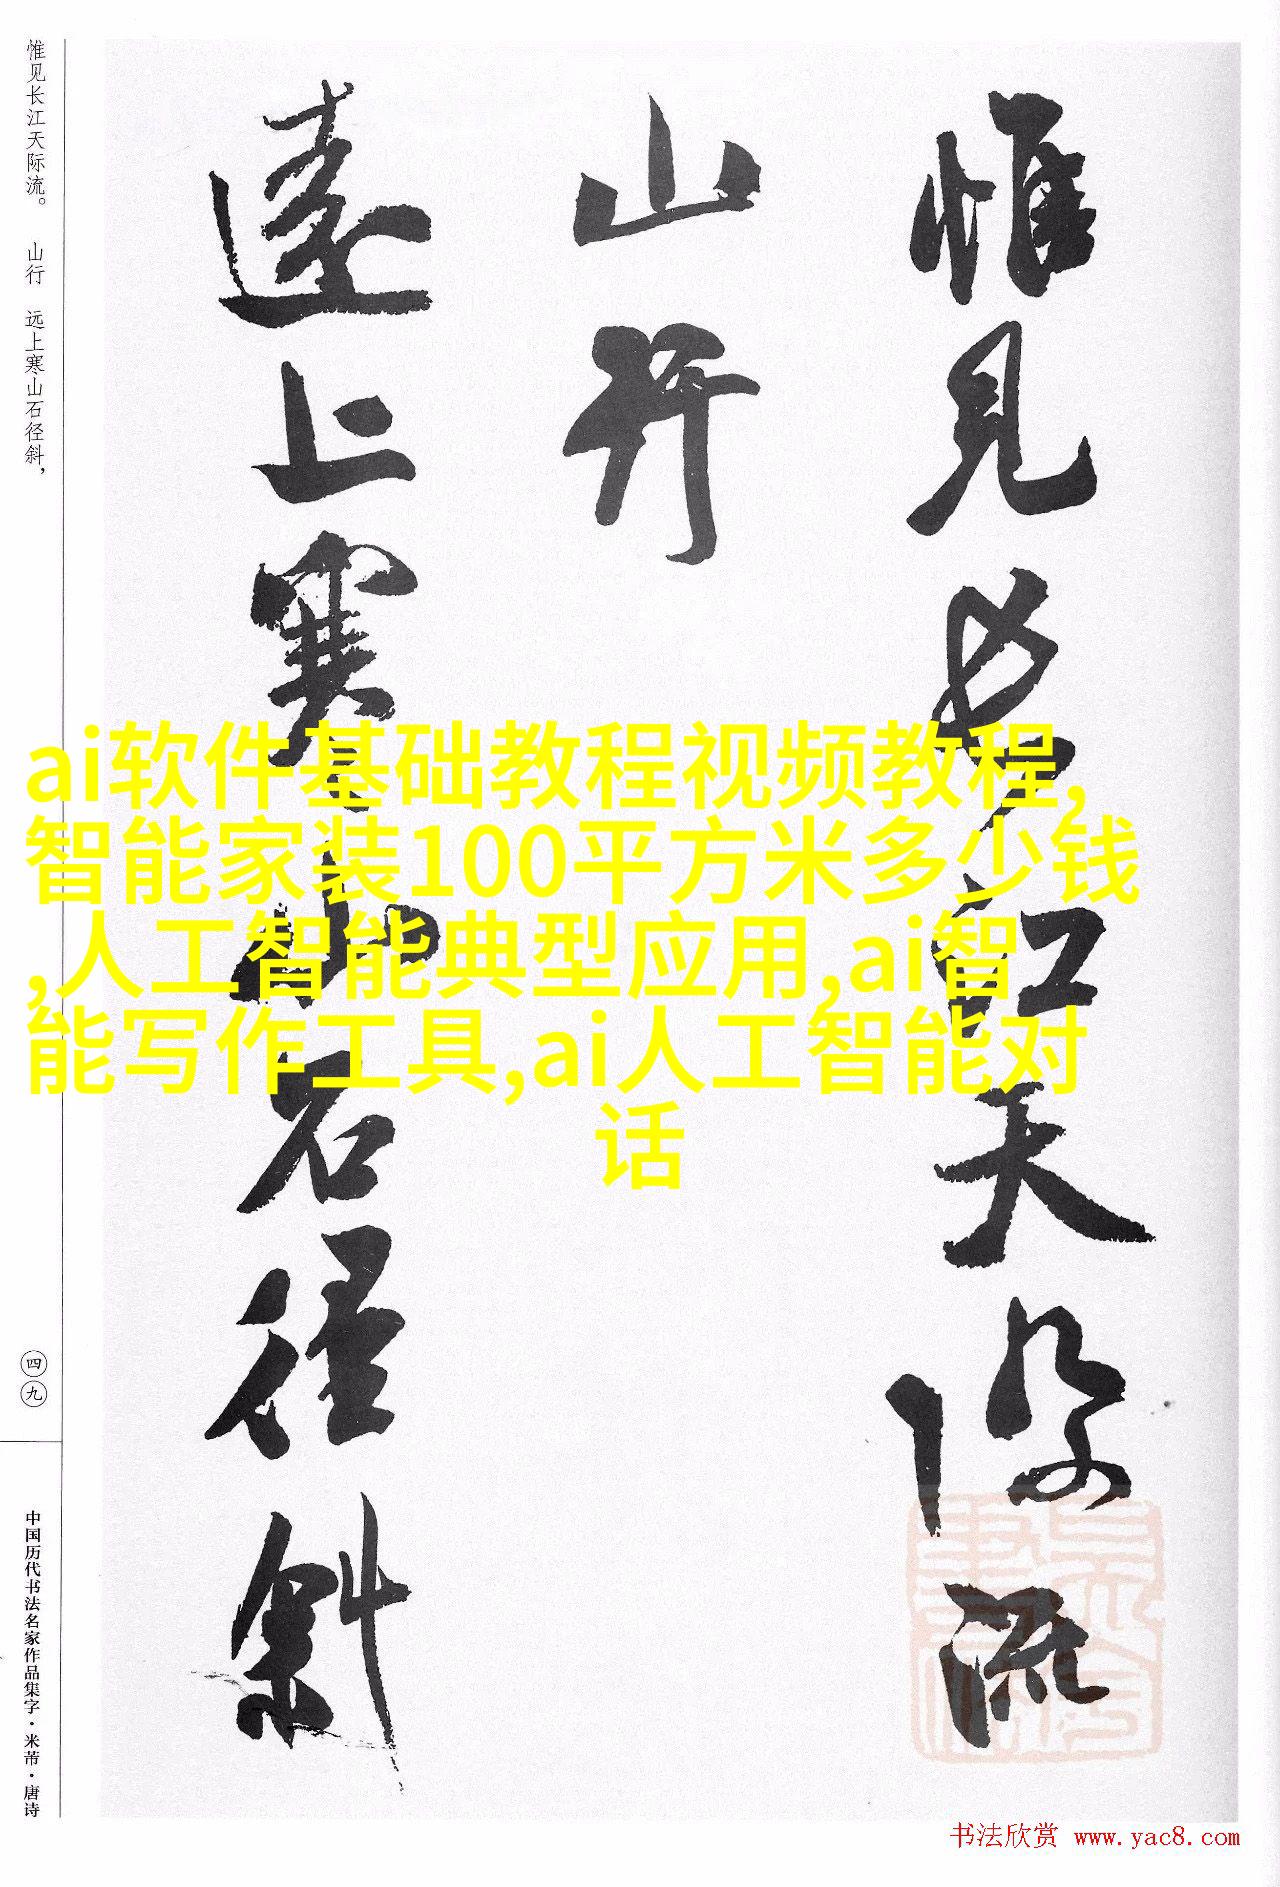 惟见长江天际流。 山行 远上寒山石径斜，
惟見長江天際流
山行
遠上寒山石徑斜
ai软件基础教程视频教程,
智能家装100平方米多少钱
,人工智能典型应用,ai智
能写作工具,ai人工智能对
话
四九
中国历代书法名家作品集字·米芾·唐诗
书法欣赏 www.yac8.com